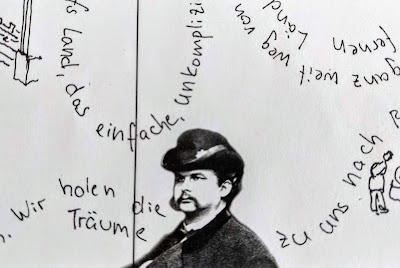 fs Land, das
einfache, unkomplizi
ganz weit weg von
fernen Land
n. Wir holen die
Träume
zu uns nach